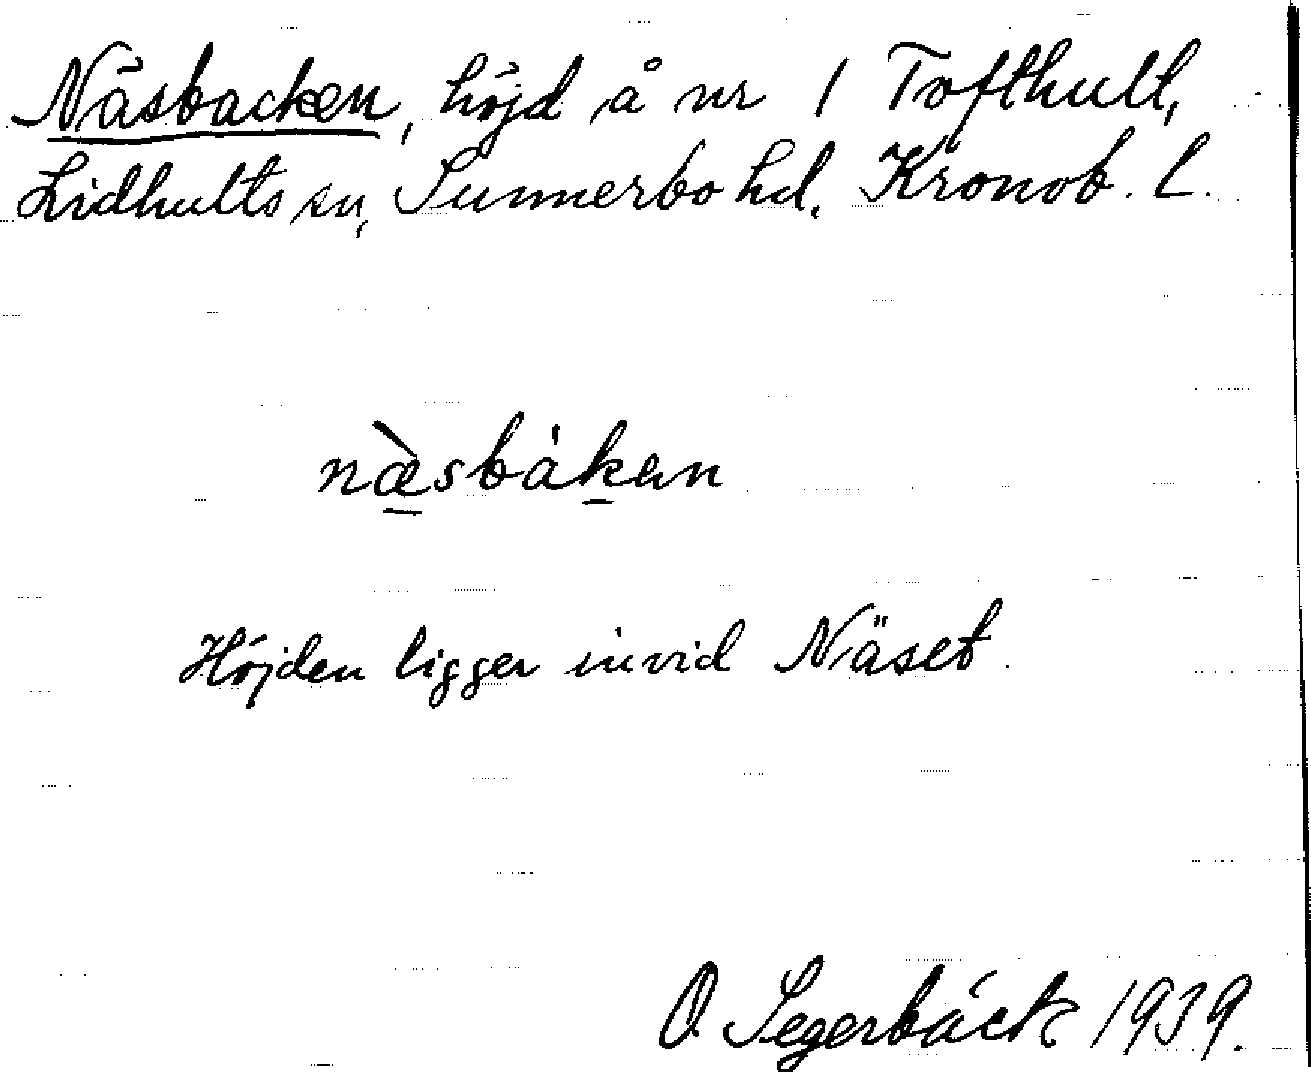 Näsbacken, höjd å nr 1 Tofthult,
Lidhults sn, Sunnerbo hd. Kronob. l.
næ̀sbákan
Höjden ligger invid Näset.
O. Segerbäck 1939.